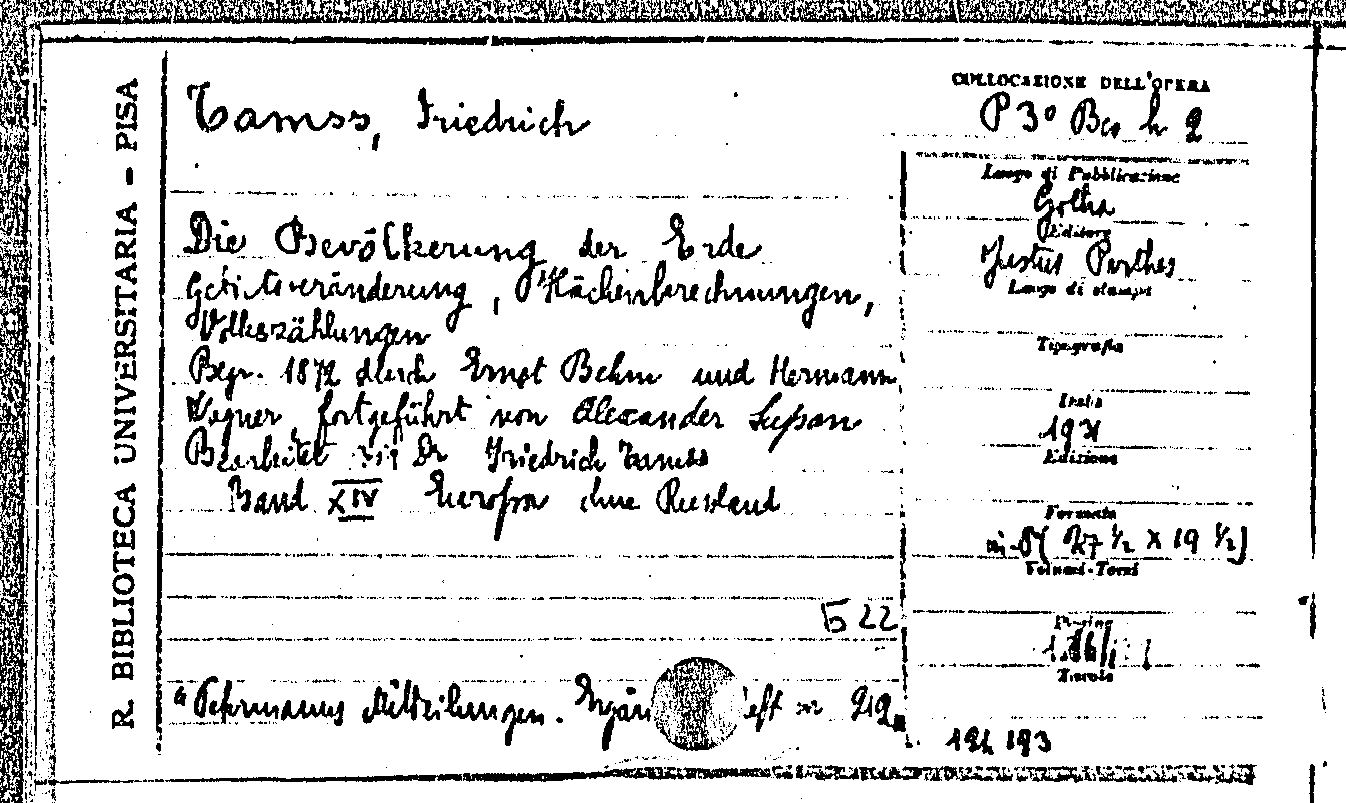 R. BIBLIOTECA UNIVERSITARIA - PISA
Tamss, Friedrich
COLLOCAZIONE DELL'OPERA
P 3° Bco h 2
Die Bevölkerung der Erde
Gebietsveränderung, Flächenberechnungen,
Volkszählungen
Begr. 1872 durch Ernst Behm und Hermann
Wagner fortgeführt von Alexander Supan
Bearbeitet Dr Friedrich Tamss
Band XIV Europa ohne Russland
Luogo di Pubblicazione
Gotha
Editore
Justus Perthes
Luogo di stampa
Tipografia
Edizione
Formato
in-8° (27 1/2 X 19 1/2)
Volumi-Tomi
Pagine
Tavole
522
"Petermanns Mitteilungen. Ergän eft nr 212"